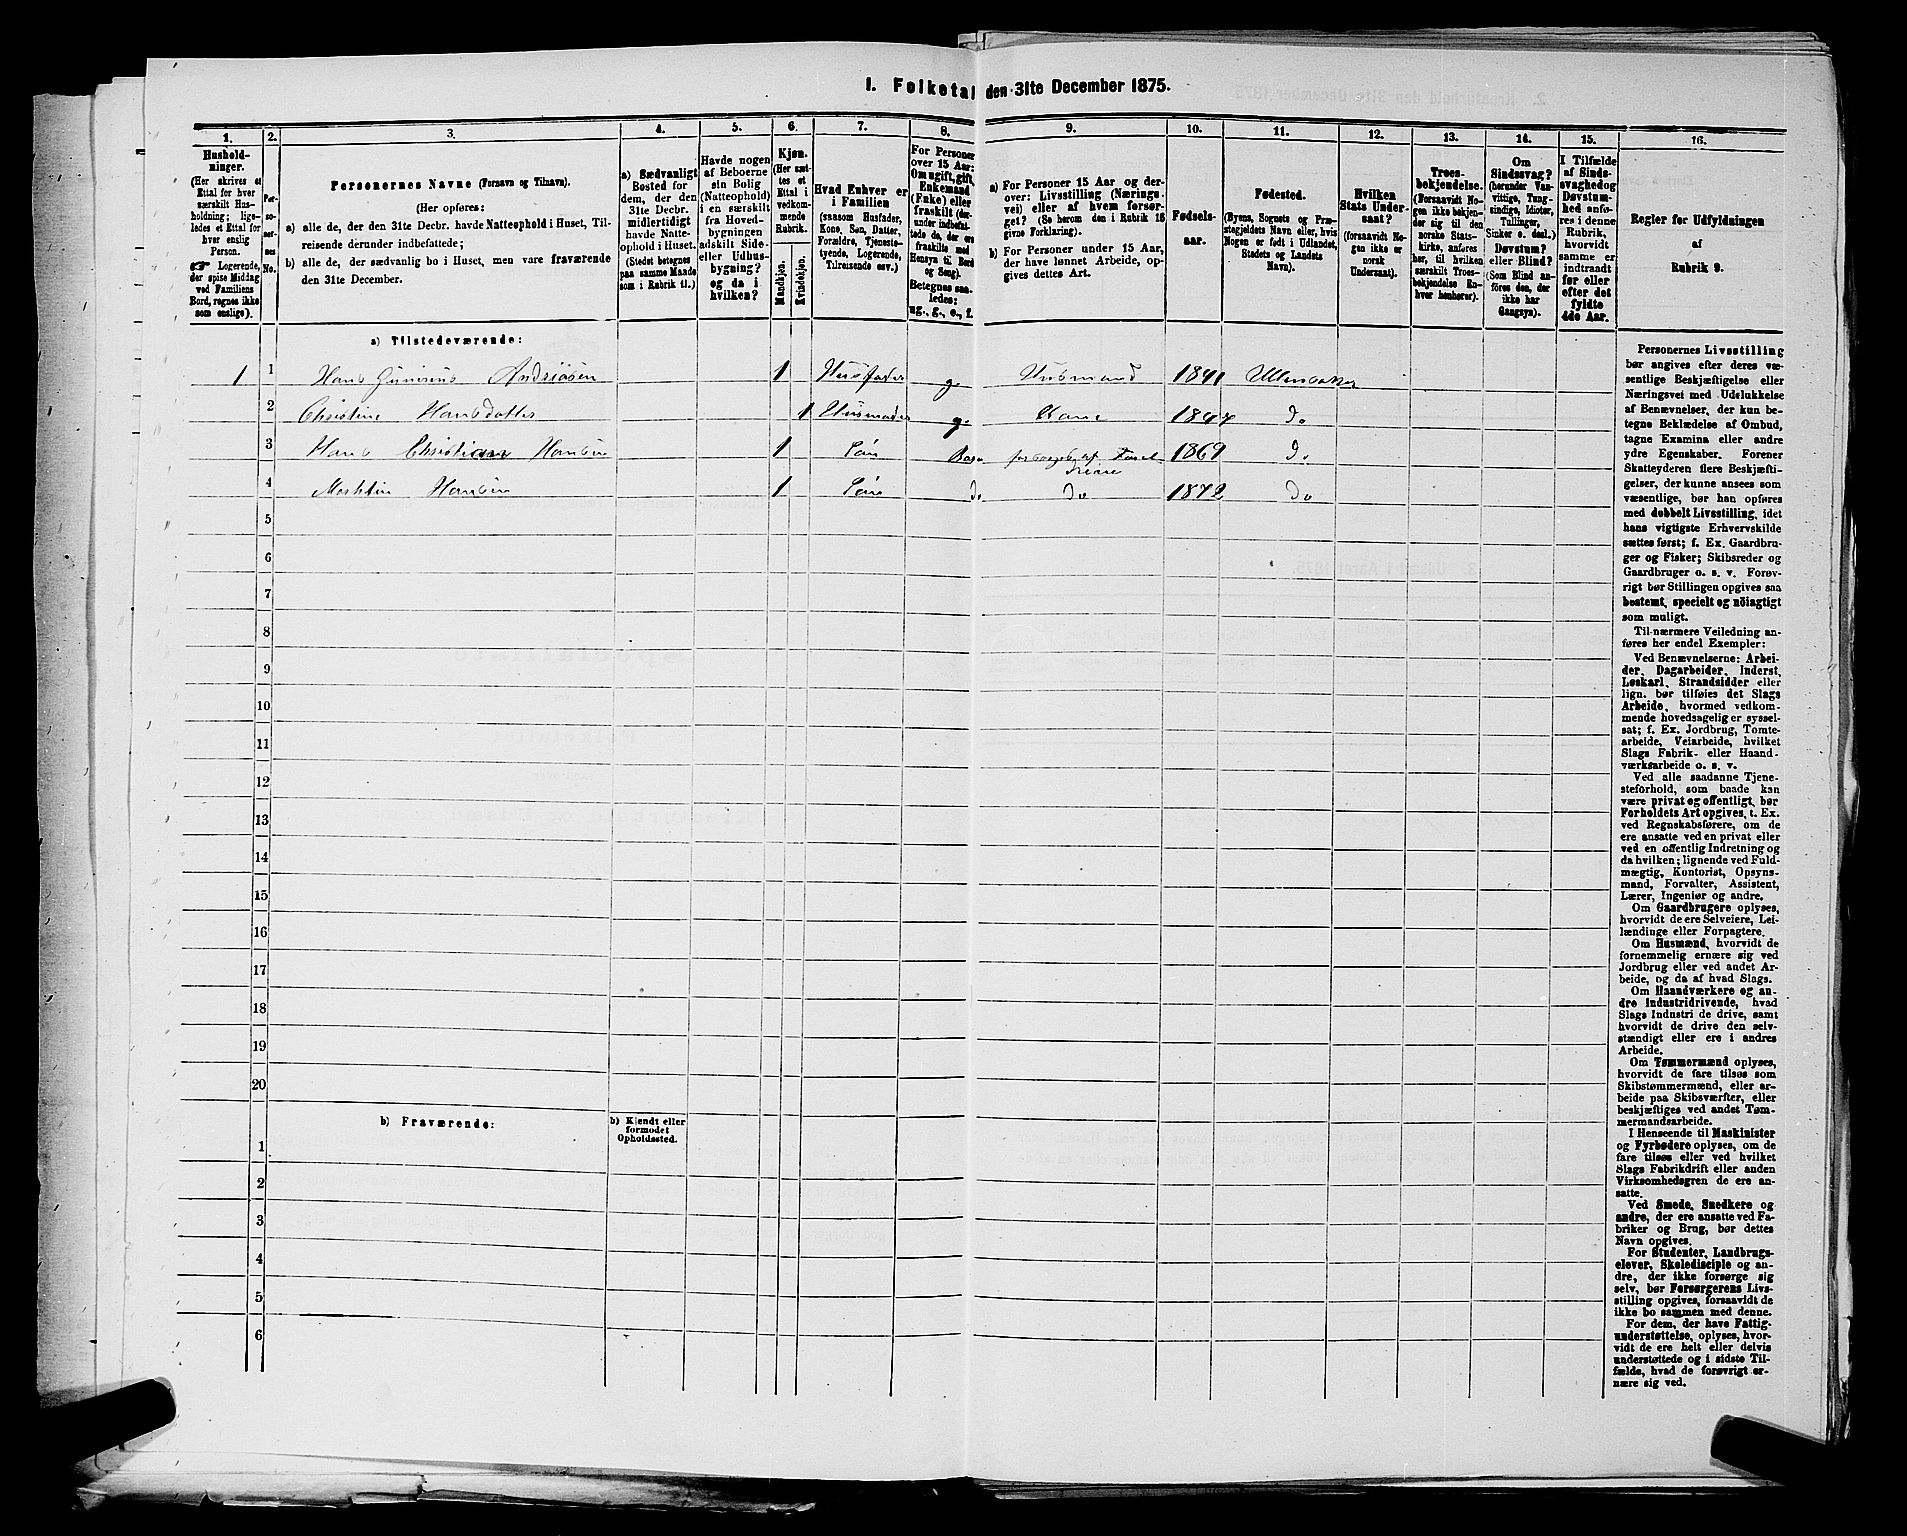 I. Folketal den 31te December 1875.
1. 2. 3. 4. 5. 6. 7. 8. 9. 10. 11. 12. 13. 14. 15. 16.
Hushold-
ninger.
(Her skrives et
Ettal for hver
særskilt Hus-
holdning; lige-
ledes et Ettal for
hver enslig
Person.
☞ Logerende,
der spise Middag
ved Familiens
Bord, regnes ikke
som enslige).
Per-
so-
ner-
nes
No.
Personernes Navne (Fornavn og Tilnavn).
(Her opføres:
a) alle de, der den 31te Decbr. havde Natteophold i Huset, Til-
reisende derunder indbefattede;
b) alle de, der sædvanlig bo i Huset, men vare fraværende
den 31te December.
a) Sædvanligt
Bosted for
dem, der den
31te Decbr.
midlertidigt
havde Natte-
ophold i Huset.
(Stedet betegnes
paa samme Maade
som i Rubrik 11.)
Havde nogen
af Beboerne
sin Bolig
(Natteophold)
i en særskilt
fra Hoved-
bygningen
adskilt Side-
eller Udhus-
bygning?
og da i
hvilken?
Kjøn.
(Her sæt-
tes et
Ettal i
vedkom-
mende
Rubrik.
Mandkjøn. Kvindekjøn.
Hvad Enhver er
i Familien
(saasom Husfader,
Kone, Søn, Datter,
Forældre, Tjeneste-
tyende, Logerende,
Tilreisende osv.)
For Personer
over 15 Aar:
Om ugift, gift,
Enkemand
(Enke) eller
fraskilt (der-
under indbefat-
tede de, der ere
fraskilte med
Hensyn til Bord
og Seng).
Betegnes saa-
ledes:
ug., g., e., f.
a) For Personer 15 Aar og der-
over: Livsstilling (Nærings-
vei) eller af hvem forsør-
get? (Se herom den i Rubrik 16
givne Forklaring).
b) For Personer under 15 Aar,
der have lønnet Arbeide, op-
gives dettes Art.
Fødsels-
aar.
Fødested.
(Byens, Sognets og Præ-
stegjeldets Navn eller, hvis
Nogen er født i Udlandet,
Stedets og Landets
Navn).
Hvilken
Stats Under-
saat?
(forsaavidt No-
gen ikke er
norsk
Undersaat).
Troes-
bekjendelse.
(Forsaavidt No-
gen ikke bekjen-
der sig til den
norske Stats-
kirke, anføres
her, til hvilken
særskilt Troes-
bekjendelse En-
hver henhører).
Om
Sindssvag?
(herunder Van-
vittige, Tung-
sindige, Idioter,
Tullinger,
Sinker o. desl.)
Døvstum?
eller Blind?
(Som Blind an-
føres den, der
ikke har
Gangsyn).
I Tilfælde
af Sinds-
svaghed og
Døvstum-
hed anfø-
res i denne
Rubrik,
hvorvidt
samme er
indtraadt
før eller
efter det
fyldte
4de Aar.
Regler for Udfyldningen
af
Rubrik 9.
a) Tilstedeværende:
1 1 Hans Andriasen 1 Husfader g. Husmand 1841 Ullensaker
2 Christine Hansdatter 1 Husmoder g. Kone 1847 do
3 Hans Christian Hansen 1 Søn forsørges af 1869 Do
4 Hansen 1 Søn do Do 1872 Do
5
6
7
8
9
10
11
12
13
14
15
16
17
18
19
20
b) Fraværende:
b) Kjendt eller
formodet
Opholdssted.
1
2
3
4
5
6
Personernes Livsstilling
bør angives efter deres væ-
sentlige Beskjæftigelse eller
Næringsvei med Udelukkelse
af Benævnelser, der kun be-
tegne Beklædelse af Ombud,
tagne Examina eller andre
ydre Egenskaber. Forener
Skatteyderen flere Beskjæfti-
gelser, der kunne ansees som
væsentlige, bør han opføres
med dobbelt Livsstilling, idet
hans vigtigste Erhvervskilde
sættes først; f. Ex. Gaardbru-
ger og Fisker; Skibsreder og
Gaardbruger o. s. v. Forøv-
rigt bør Stillingen opgives saa
bestemt, specielt og nöiagtigt
som muligt.
Til nærmere Veiledning an-
føres her endel Exempler:
Ved Benævnelserne: Arbei-
der, Dagarbeider, Inderst,
Løskarl, Strandsidder eller
lign. bør tilføies det Slags
Arbeide, hvormed vedkom-
mende hovedsagelig er syssel-
sat; f. Ex. Jordbrug, Tomte-
arbeide, Veiarbeide, hvilket
Slags Fabrik- eller Haand-
værksarbeide o. s. v.
Ved alle saadanne Tjene-
steforhold, som baade kan
være privat og offentligt, bør
Forholdets Art opgives, t. Ex.
ved Regnskabsførere, om de
ere ansatte ved en privat eller
ved en offentlig Indretning og
da hvilken; lignende ved Fuld-
mægtig, Kontorist, Opsyns-
mand, Forvalter, Assistent,
Lærer, Ingeniør og andre.
Om Gaardbrugere oplyses,
hvorvidt de ere Selveiere, Lei-
lændinge eller Forpagtere.
Om Husmænd, hvorvidt de
fornemmelig ernære sig ved
Jordbrug eller ved andet Ar-
beide, og da af hvad Slags.
Om Haandværkere og an-
dre Industridrivende, hvad
Slags Industri de drive, samt
hvorvidt de drive den selv-
stændigt eller ere i andres
Arbeide.
Om Tømmermænd oplyses,
hvorvidt de fare tilsøs som
Skibstømmermænd, eller ar-
beide paa Skibsværfter, eller
beskjæftiges ved andet Tøm-
mermandsarbeide.
I Henseende til Maskinister
og Fyrbødere oplyses, om de
fare tilsøs eller ved hvilket
Slags Fabrikdrift eller anden
Virksomhedsgren de ere an-
satte.
Ved Smede, Snedkere og
andre, der ere ansatte ved Fa-
briker og Brug, bør dettes
Navn opgives.
For Studenter, Landbrugs-
elever, Skoledisciple og an-
dre, der ikke forsørge sig
selv, bør Forsørgerens Livs-
stilling opgives, forsaavidt de
ikke bo sammen med denne.
For dem, der have Fattig-
understøttelse, oplyses, hvor-
vidt de ere helt eller delvis
understøttede og i sidste Til-
fælde, hvad de forøvrigt er-
nære sig ved.